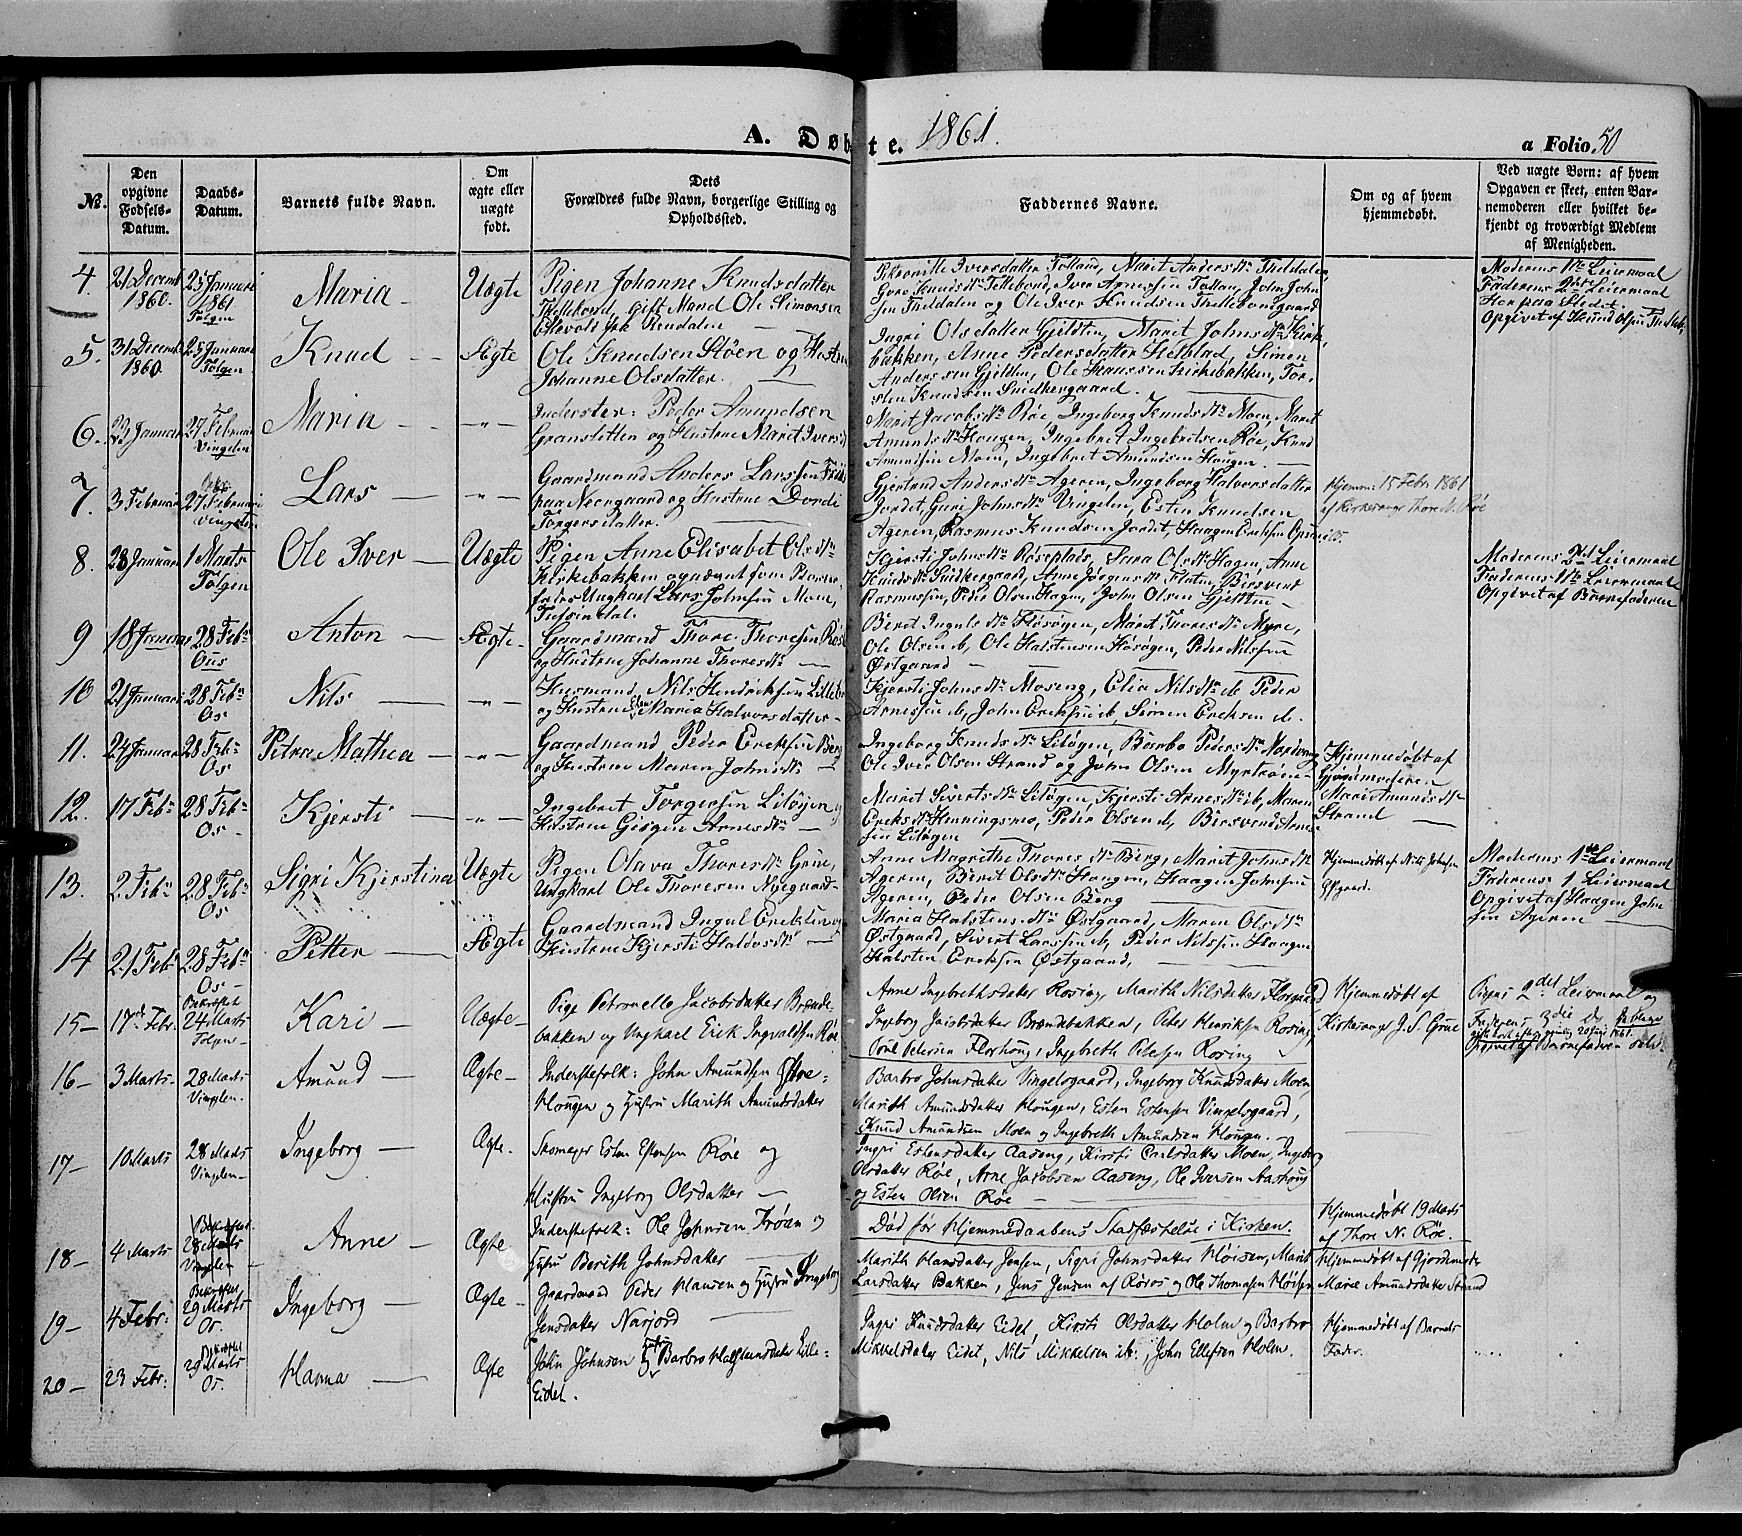 A. Døbte. 1861.
a Folio 50
No.
Den opgivne Fødsels-Datum.
Daabs-Datum.
Barnets fulde Navn.
Om ægte eller uægte født.
Dets Forældres fulde Navn, borgerlige Stilling og Opholdssted.
Faddernes Navne.
Om og af hvem hjemmedøbt.
Ved uægte Børn: af hvem Opgaven er skeet, enten Barnemoderen eller hvilket bekjendt og troværdigt Medlem af Menigheden.
4. 21 Decemb 1860. 25 Januari 1861. Tolgen Maria Uægte
Pigen Johanne Knudsdatter
gift Mand Ole Simonsen
Iversdatter Tolland, Marit Anders Dtr
Iver Arnessen Tollan, John John
sen og Ole Iver Knudsen
Moderens 1ste Leiermaal
Faderens 2det Leiermaal
Her paa Stedet.
Opgivet af Knud Olsen
5. 31 Decemb 1860. 25 Januari Tolgen Knud Ægte
Ole Knudsen Støen og Hustru
Johanne Olsdatter.
Ingri Olsdatter Gjeldten, Marit Johns Dtr Kirk
bakken, Anne Pedersdatter Simen
Anderssen Gjeldten, Ole Hanssen Kirkebakken, Tor
sten Knudsen Snidkergaard.
6. 23 Januar 27 Februar Vingelen Maria -"-
Inderster: Peder Amundsen
og Hustrue Marit Ivers
Marit Jacobs Dtr Røe, Ingeborg Knuds Dtr Moen, Marit
Amunds Dtr Haugen, Ingebret Ingebritsen Røe, Knud
Amundsen Moen, Ingebret Amundsen Haugen.
7. 3 Februar 27 Februari Vingelen Lars -"-
Gaardmand Anders Larssen
paa Neergaard og Hustrue Dordi
Torgersdatter.
Gjertrud Anders Dtr Ageren, Ingeborg Halvorsdatter
Jordet, Guri Johns Dtr Vingelen, Esten Knudsen
Ageren, Rasmus Knudsen Jordet, Haagen
Hjemme: 15 Febr. 1861
af Kirkesanger Thore N. Røe
8. 28 Januar 1 Marts Tolgen Ole Iver Uægte
Pigen Anne Elisabet Ols Dtr
Kirkebakken og udnævnt som Barne
fader Ungkarl Lars Johnsen Moen,
Kjersti Johns Dtr Røseplads, Sara Ols Dtr Hagen, Anne
Knuds Dtr Snidkergaard, Anne Jørgens Dtr Flaten, Bersvend
Rasmussen, Peder Olsen Hagen, John Olsen Gjeldten
Moderens 2det Leiermaal
Faderens 1ste Leiermaal
Opgivet af Barnefaderen
9 18 Januar 28 Febr Ous Anton Ægte
Gaardmand Thore Thoresen
og Hustrue Johanne Thores Dtr
Berit Inguls Dtr Høsøgen, Marit Thores Dtr Myre,
Ole Olsen ib, Ole Halstensen Høsøgen, Peder Nilssen
Østgaard
10 21 Januari 28 Febr Os Nils -"-
Husmand Nils Hendrikssen
og Hustrue Maria Halvorsdatter
Kjersti Johns Dtr Moseng, Elia Nils Dtr ib Peder
Arnessen ib, John Erikssen ib, Simen Eriksen ib.
11. 24 Januar 28 Febr Os Petrine Mathea -"-
Gaardmand Peder Erichsen Berg
og Hustrue Maren Johns Dtr
Ingeborg Knuds Dtr Litøgen, Barbo Peders Dtr Nordvang
Ole Iver Olsen Strand og John Olsen Myrtrøen
Hjemmedøbt af
Gjordmoderen
Mari Amunds Dtr
Strand
12. 17 Febr 28 Febr Os Kjersti -"-
Ingebret Torgersen Litøgen og
Hustrue Gjøgen Arnes Dtr
Marit Siverts Dtr Litøgen, Kjersti Arnes Dtr ib, Maren
Eriks Dtr Henningsmo, Peder Olsen ib, Bersvend Arnes
sen Litøgen
13. 2 Febr 28 Febr Os Sigri Kjerstina Uægte
Pigen Olava Thores Dtr Grue,
Ungkarl Ole Thoresen Nyegaard
Anne Magrethe Thores Dtr Berg, Marit Johns Dtr
Ageren, Berit Ols Dtr Haugen, Haagen Johnsen
Ageren, Peder Olsen Berg
Hjemmedøbt af Nils Johnsen
Moderens 1ste Leiermaal
Faderens 1 Leiermaal
Opgivet af Haagen John
sen Ageren
14 21 Febr 28 Febr Os Petter Ægte
Gaardmand Ingul Eriksen og
Hustrue Kjersti Haldos Dtr
Maria Halstens Dtr Østgaard, Maren Ols Dtr
Østgaard, Sivert Larssen ib, Peder Nilssen Haagen
Halsten Eriksen Østgaard,
15 17de Febr. Bekræftet 24 Marts Tolgen Kari Uægte
Pige Petronelle Jacobsdatter Brænde
bakken og Ungkarl Erick Ingvaldsen Røe
Anne Ingebrethsdatter Rosing, Marith Nilsdatter Florhaug
Ingeborg Jacobsdatter Brændebakken, Peter Henriksen Rosing
Poul Petersen Florhaug, Ingebreth Petersen Rosing
Hjemmedøbt af
Kirkesanger J. S. Grue
Pigens 2det Leiermaal og
Faderens 3die
Opgivet af Barnefaderen
16 3 Marts 28 Marts Vingelen Amund Ægte
Inderstefolk: John Amundsen
Haugen og Hustru Marith Amundsdatter
Barbro Johnsdatter Vingelsgaard, Ingeborg Knudsdatter Moen
Marith Amundsdatter Haugen, Esten Estensen Vingelsgaard,
Knud Amundsen Moen og Ingebreth Amundsen Haugen.
17 10 Marts 28 Marts Vingelen Ingeborg Ægte
Skomager Esten Estensen Røe og
Hustru Ingeborg Olsdatter
Ingri Estensdatter Aaseng, Kirsti Carlsdatter Moen, Ingeborg
Olsdatter Røe, Arne Jacobsen Aaseng, Ole Iversen Aashaug
og Esten Olsen Røe
18 4 Marts Bekræftet 28 Marts Vingelen Anne Ægte
Inderstefolk: Ole Johnsen Trøan og
Hustru Berith Johnsdatter
Død før Hjemmedaabens Stadfæstelse i Kirken.
Hjemmedøbt 19 Marts
af Thore N. Røe.
19 4 Febr: Bekræftet 29 Marts Os. Ingeborg Ægte
Gaardmand Peder Hansen og Hustru Ingeborg
Jensdatter Narjord
Marith Hansdatter Jensen, Sigri Johnsdatter Høisen, Marit
Larsdatter Bakken, Jens Jensen af Røros og Ole Thomasen Høisen
Hjemmedøbt af Gjordmoder
Marie Amundsdatter Strand
20 23 Febr: Bekræftet 29 Marts Os. Hanna Ægte
John Johnsen og Hustru Barbro Halfstensdatter Lille-
Eidet.
Ingri Knudsdatter Eidet, Kirsti Olsdatter Holm og Barbro
Mikkelsdatter Eidet, Nils Mikkelsen ib:, John Ellefsen Holm.
Hjemmedøbt af Barnets
Fader.